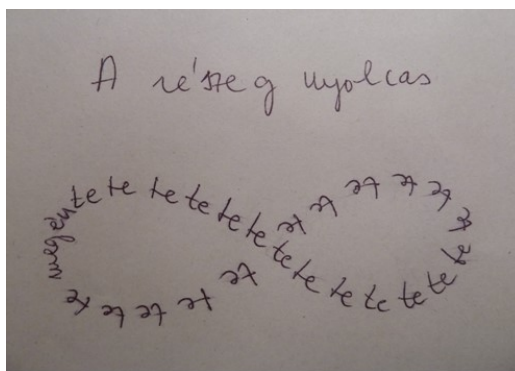 A részeg nyolcas
megén te te te te te te te te te te te te te te te te te te te te te te te te